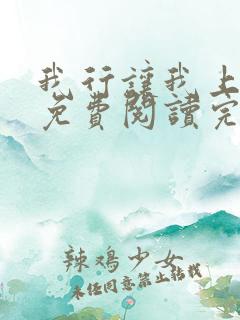 我行讓我上
免費閱讀完
辣鸡少女
未经同意禁止转载